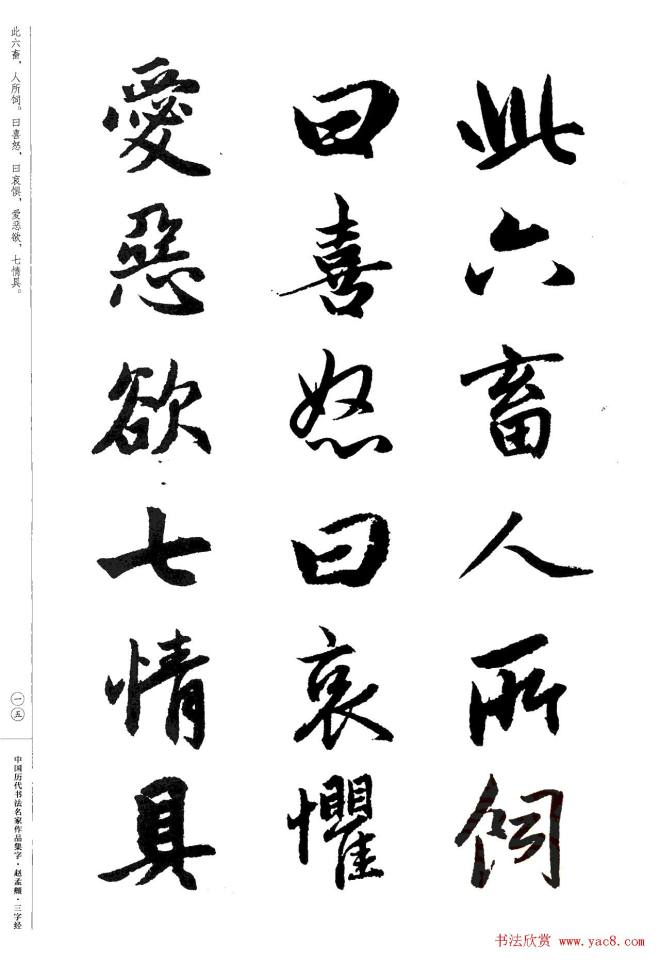 此六畜人所饲
曰喜怒曰哀懼
愛惡欲七情具
此六畜，人所饲。曰喜怒，曰哀惧，爱恶欲，七情具。
一五
中国历代书法名家作品集字·赵孟頫·三字经
书法欣赏 www.yac8.com